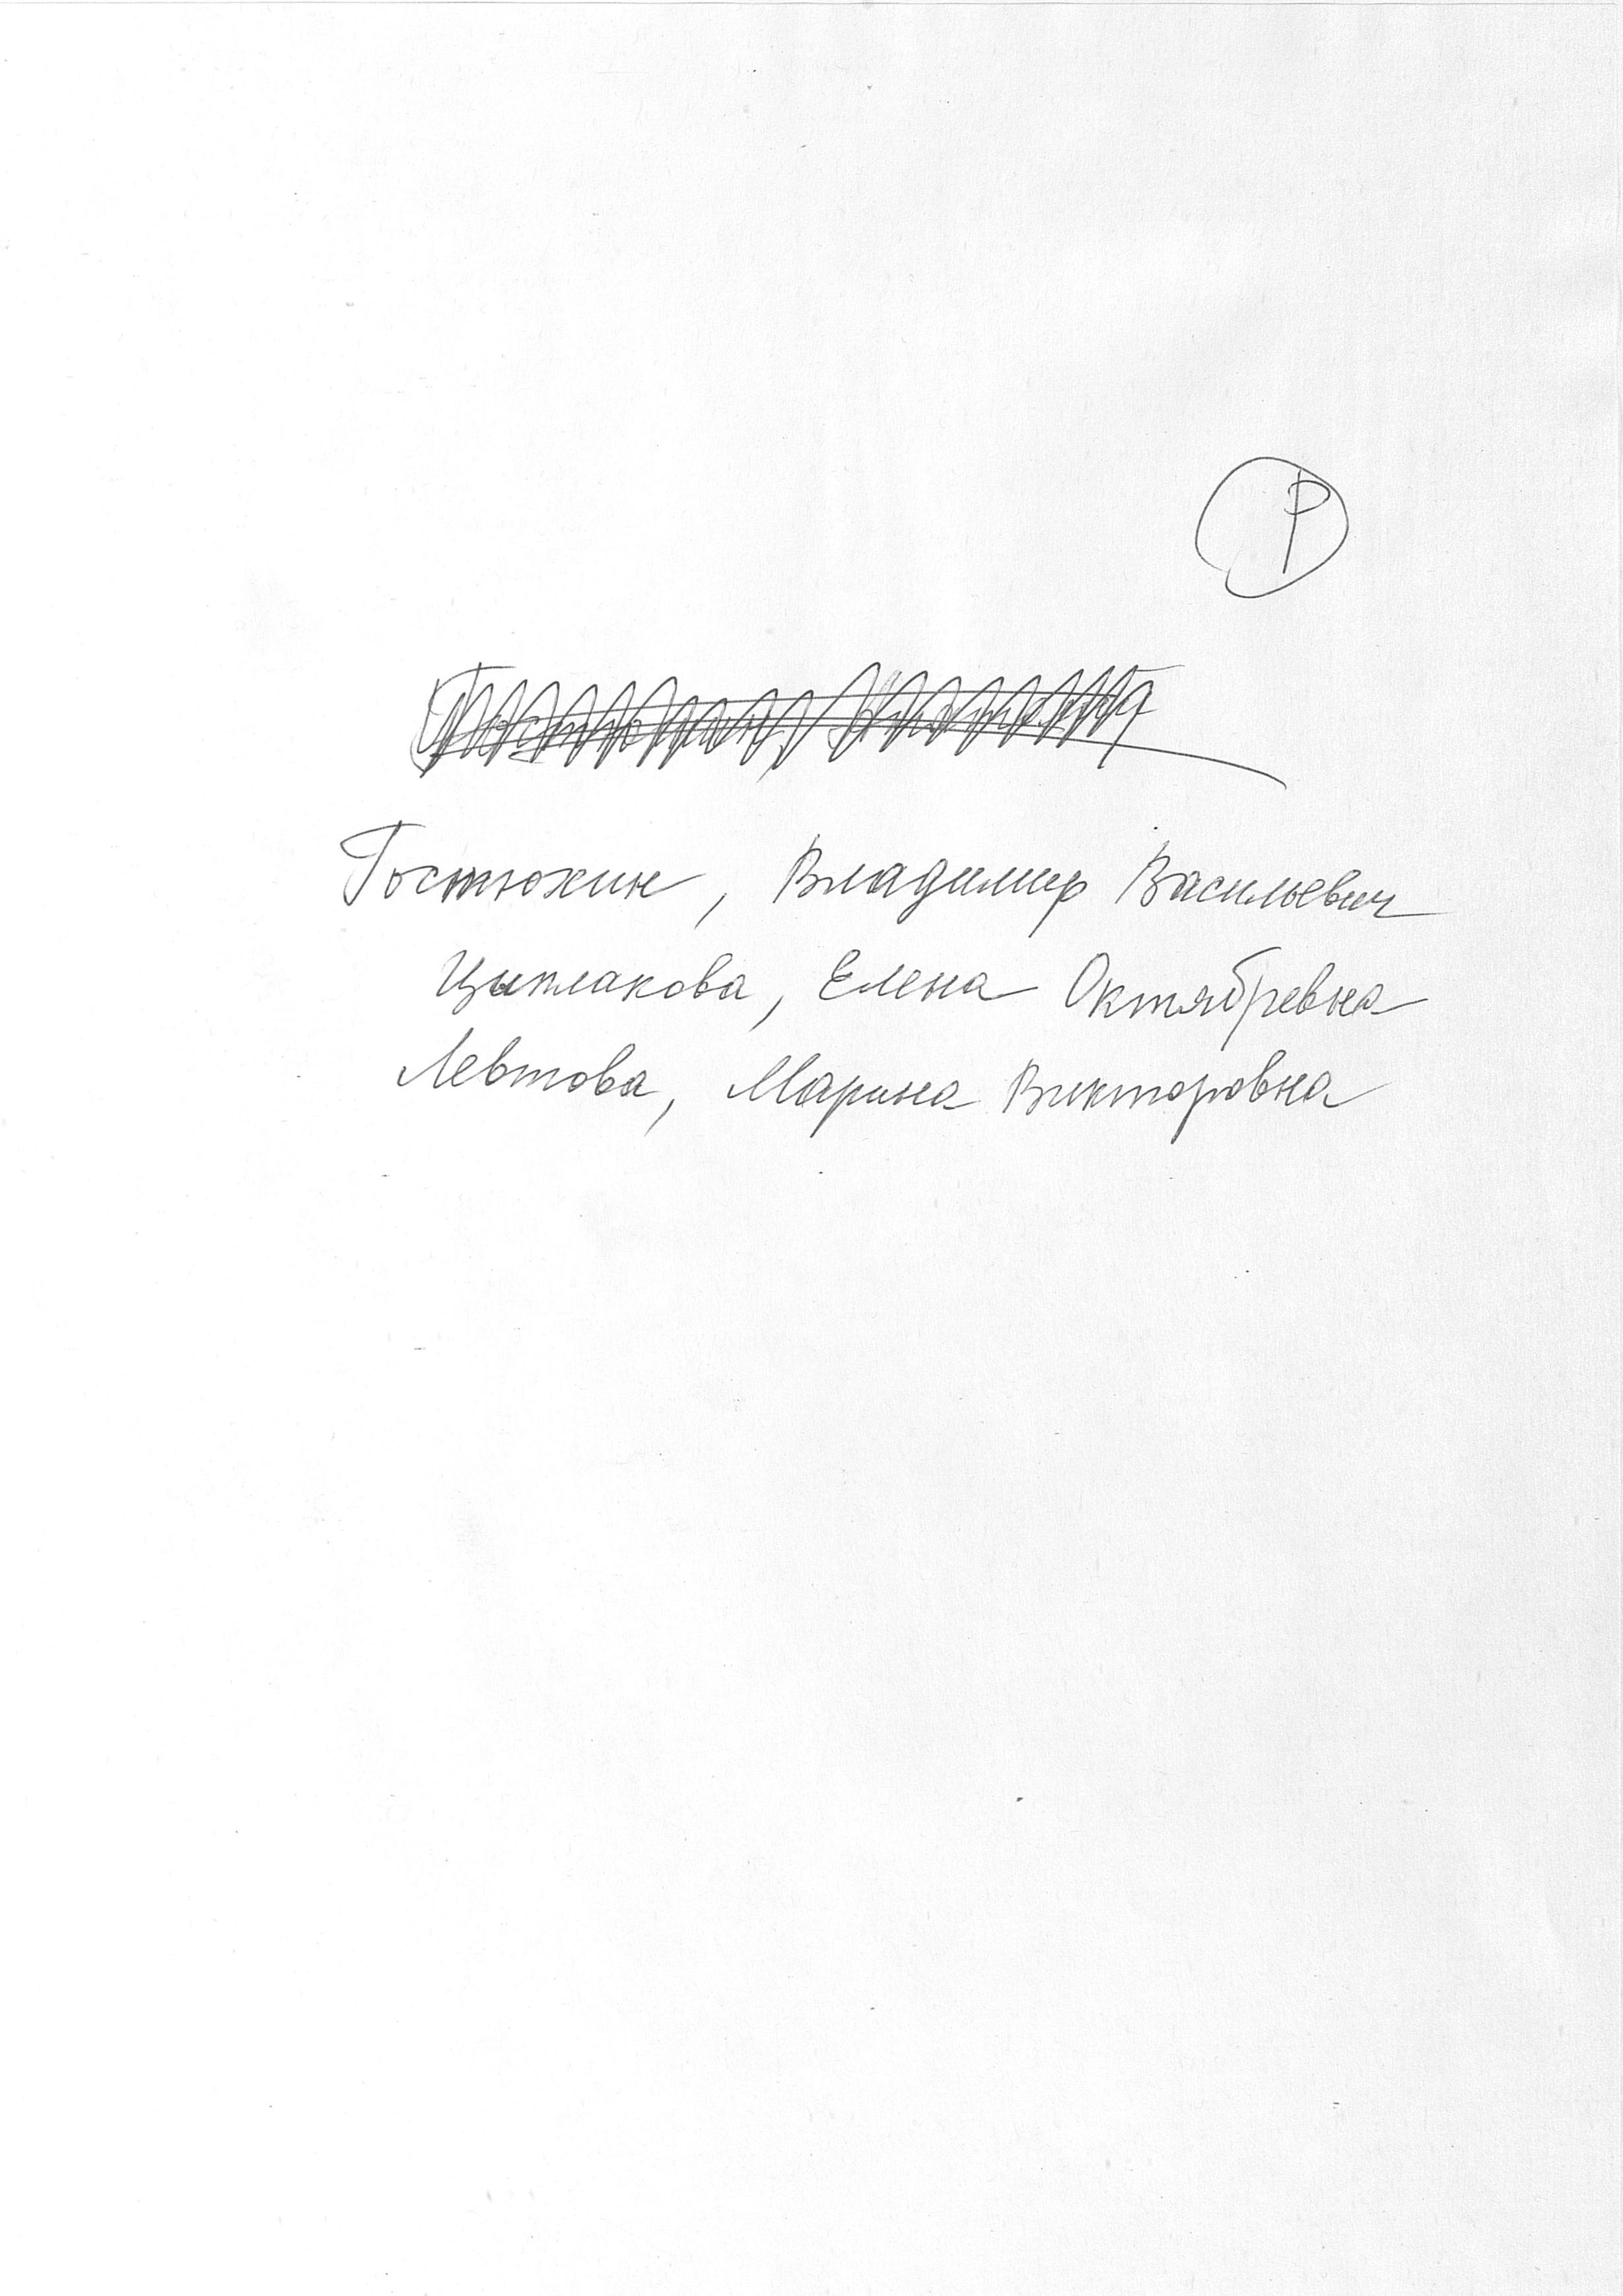 Р
Гостюхин, Владимир Васильевич
Цыплакова, Елена Октябревна
Левтова, Марина Викторовна